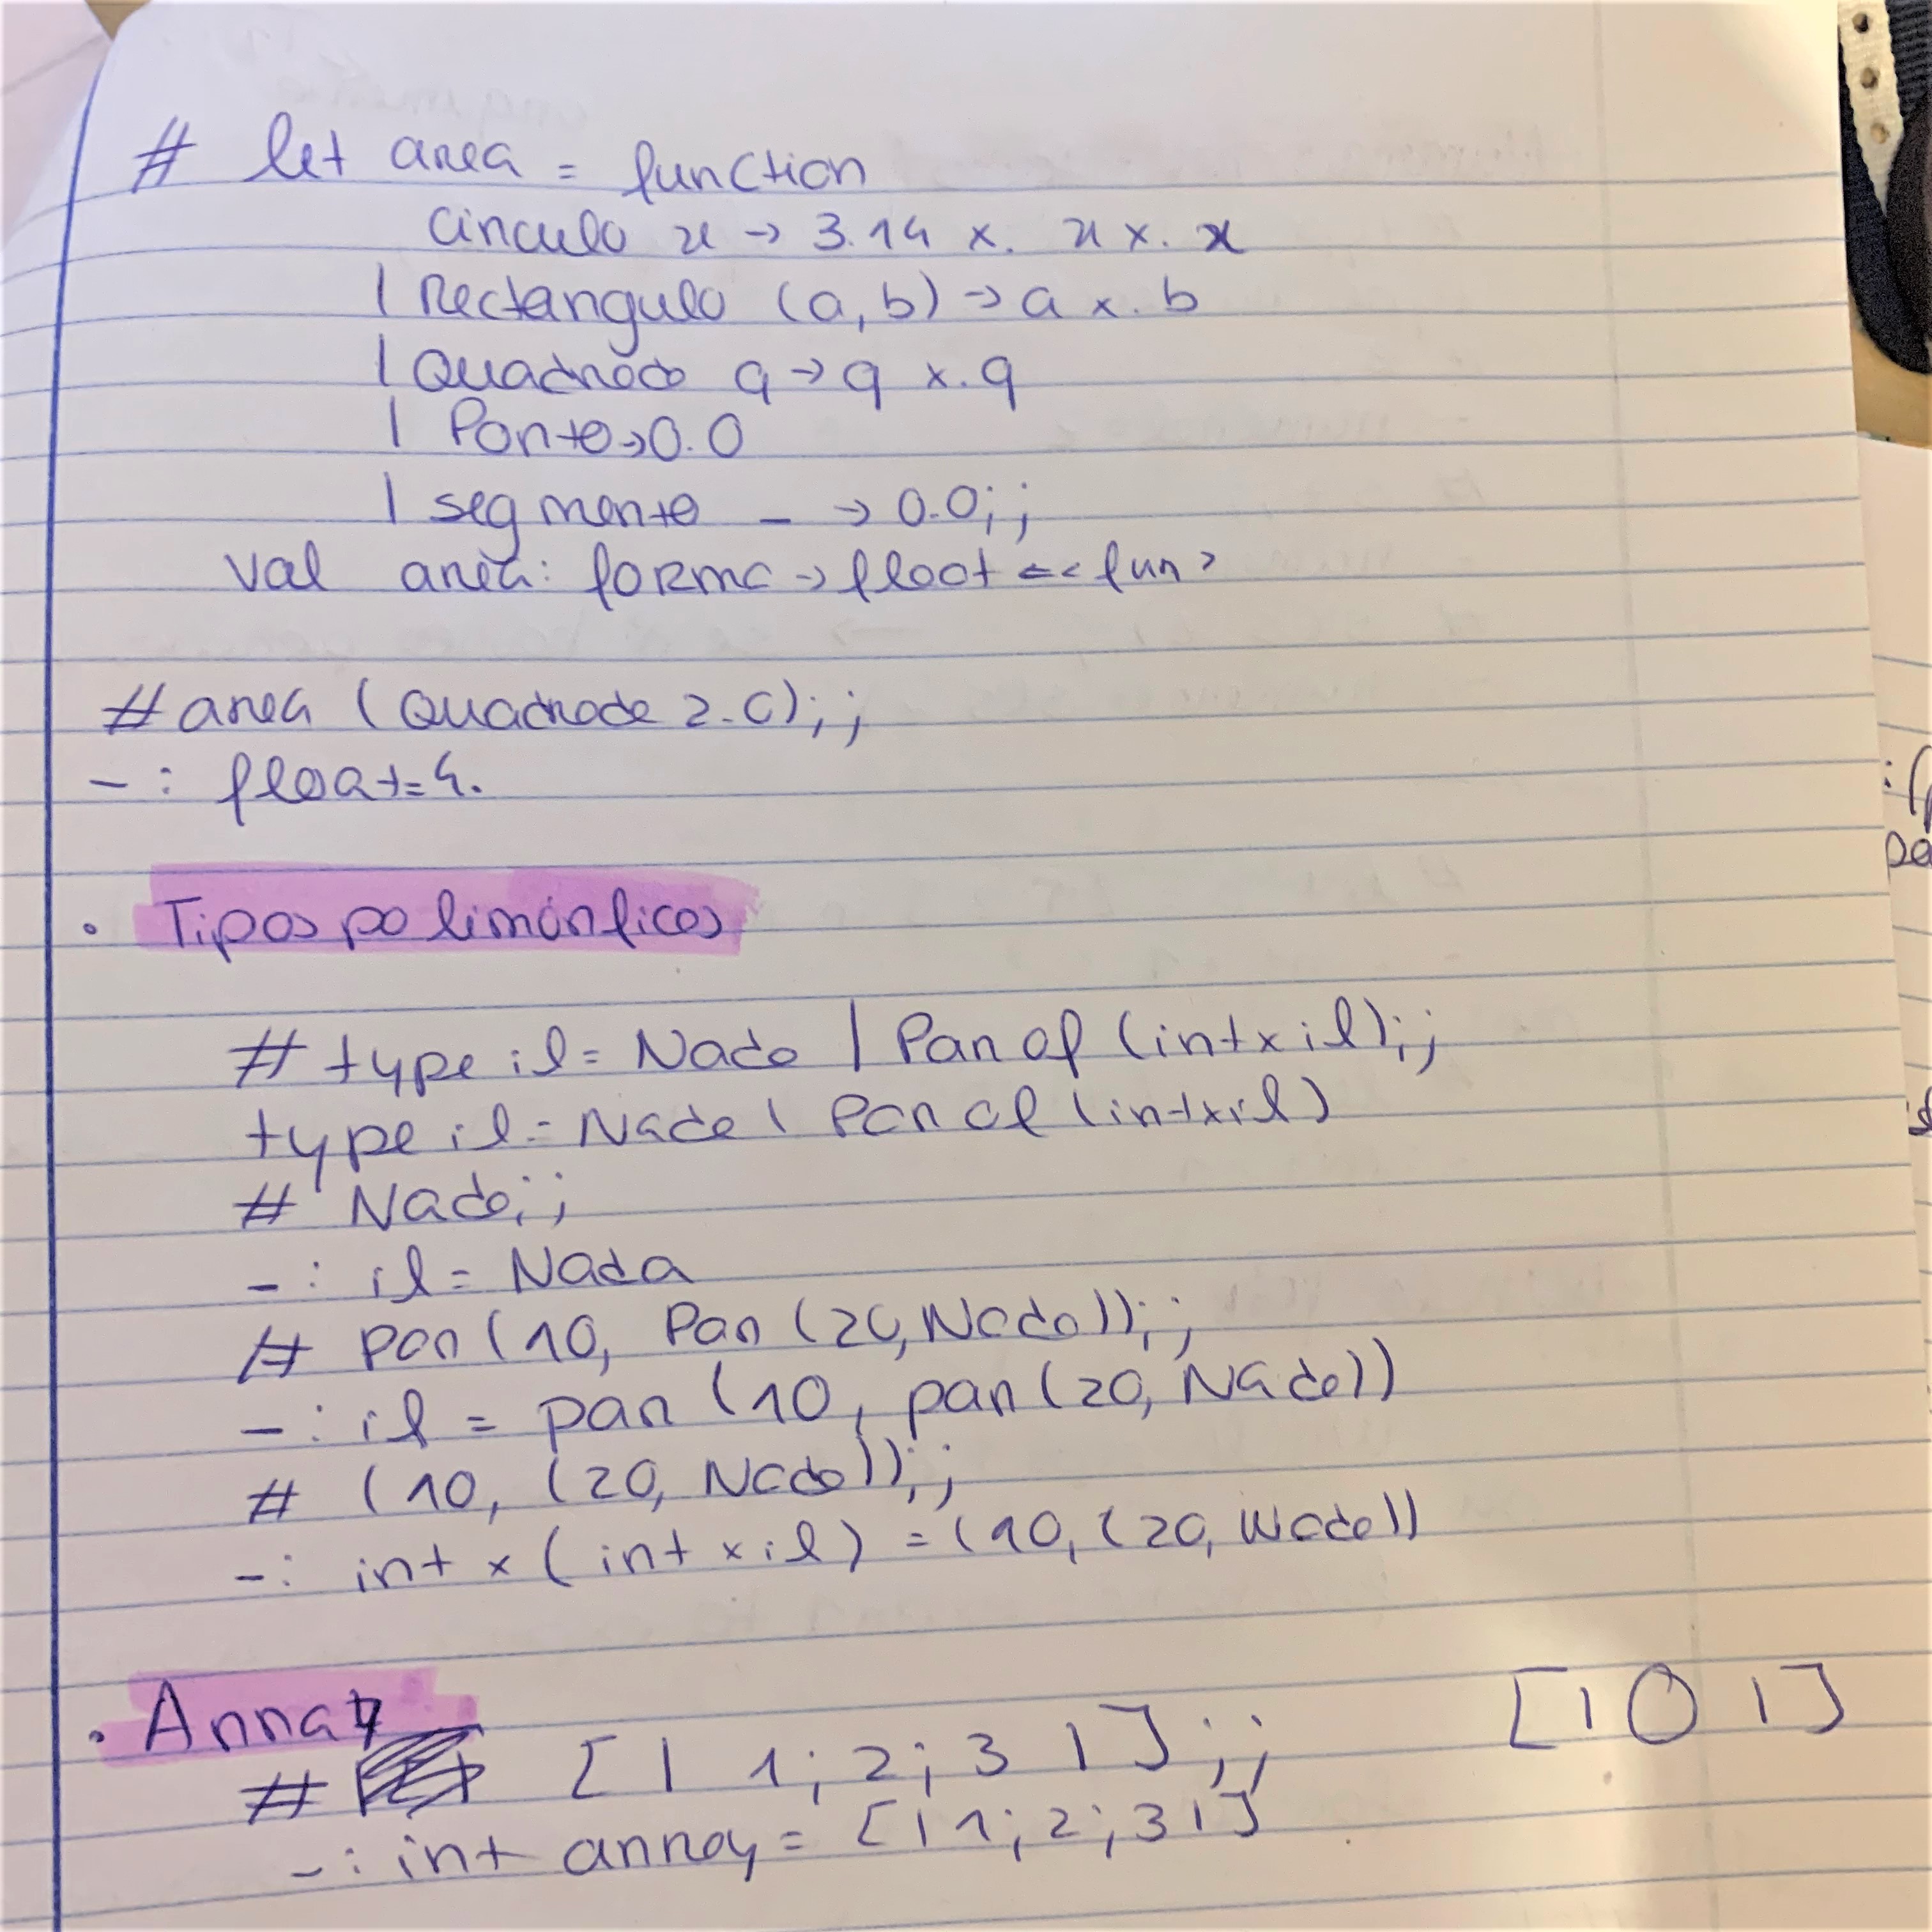 # let area = function
circulo x → 3.14 x. x x. x
| Rectangulo (a, b) → a x. b
| Quadrado q → q x. q
| Ponto → 0.0
| segmento _ → 0.0;;
val area: forma → float = <fun>
# area (Quadrado 2.0);;
- : float = 4.
• Tipos polimórficos
# type il = Nada | Par of (int x il);;
type il = Nada | Par of (int x il)
# Nada;;
- : il = Nada
# par (10, Par (20, Nada));;
- : il = par (10, par (20, Nada))
# (10, (20, Nada));;
- : int x (int x il) = (10, (20, Nada))
• Array
# [| 1; 2; 3 |];; [| 0 |]
- : int array = [| 1; 2; 3 |]